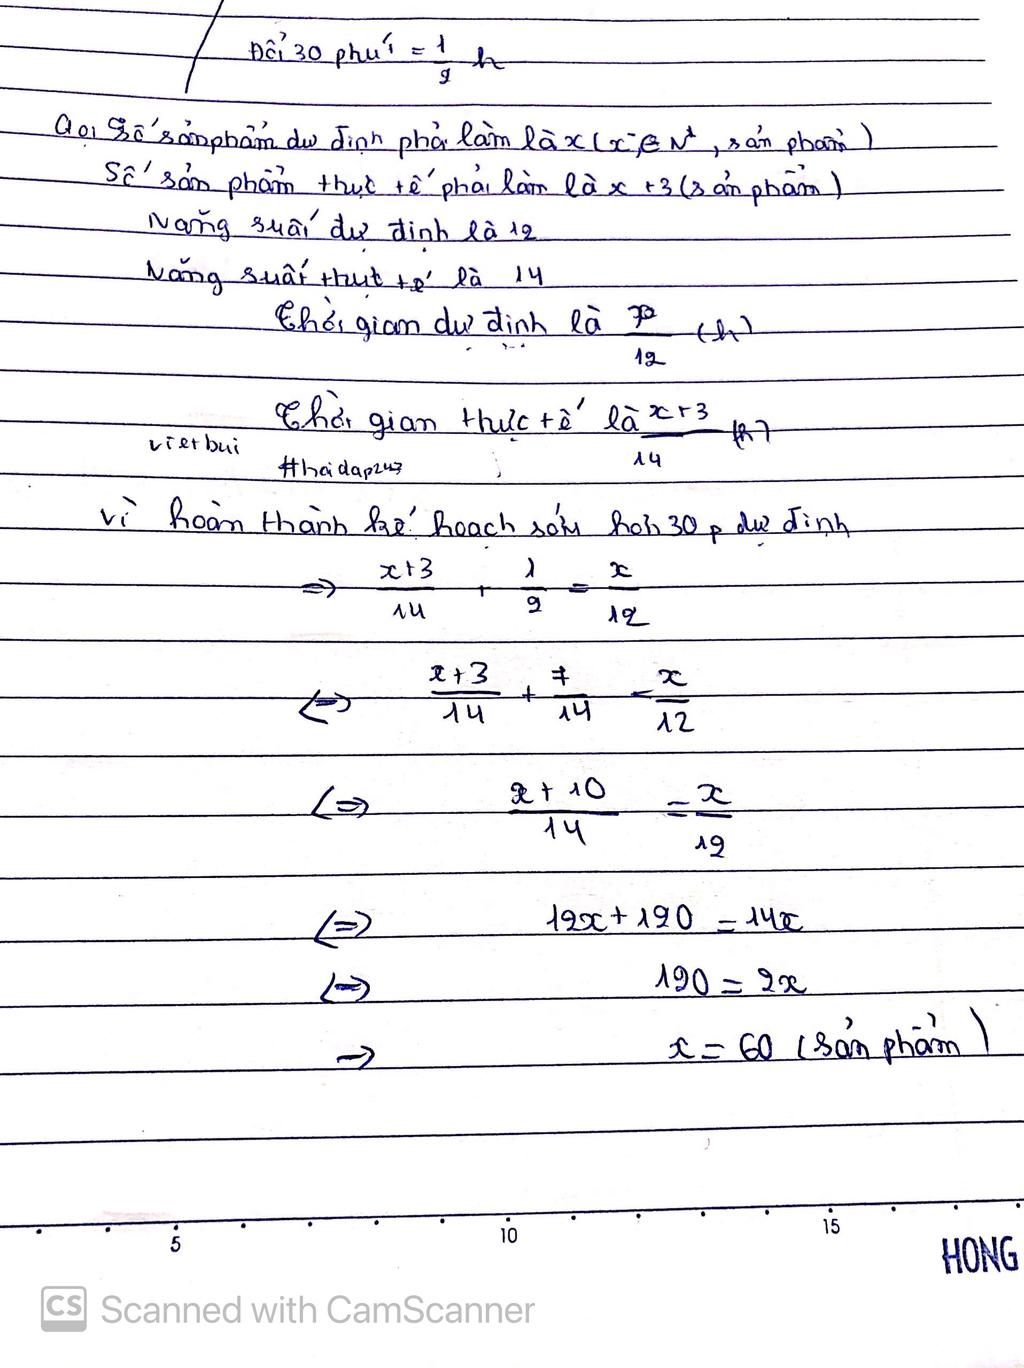 Đổi 30 phút = 1/2 h
Gọi số sản phẩm dự định phải làm là x (x ∈ N*, sản phẩm)
Số sản phẩm thực tế phải làm là x + 3 (sản phẩm)
Năng suất dự định là 12
Năng suất thực tế là 14
Thời gian dự định là x/12 (h)
Thời gian thực tế là x+3/14 (h)
vietbui
#hoidap247
vì hoàn thành kế hoạch sớm hơn 30p dự định
=> x+3/14 + 1/2 = x/12
<=> x+3/14 + 7/14 = x/12
<=> x+10/14 = x/12
<=> 12x + 120 = 14x
<=> 120 = 2x
=> x = 60 (sản phẩm)
5 10 15
HONG
CS Scanned with CamScanner